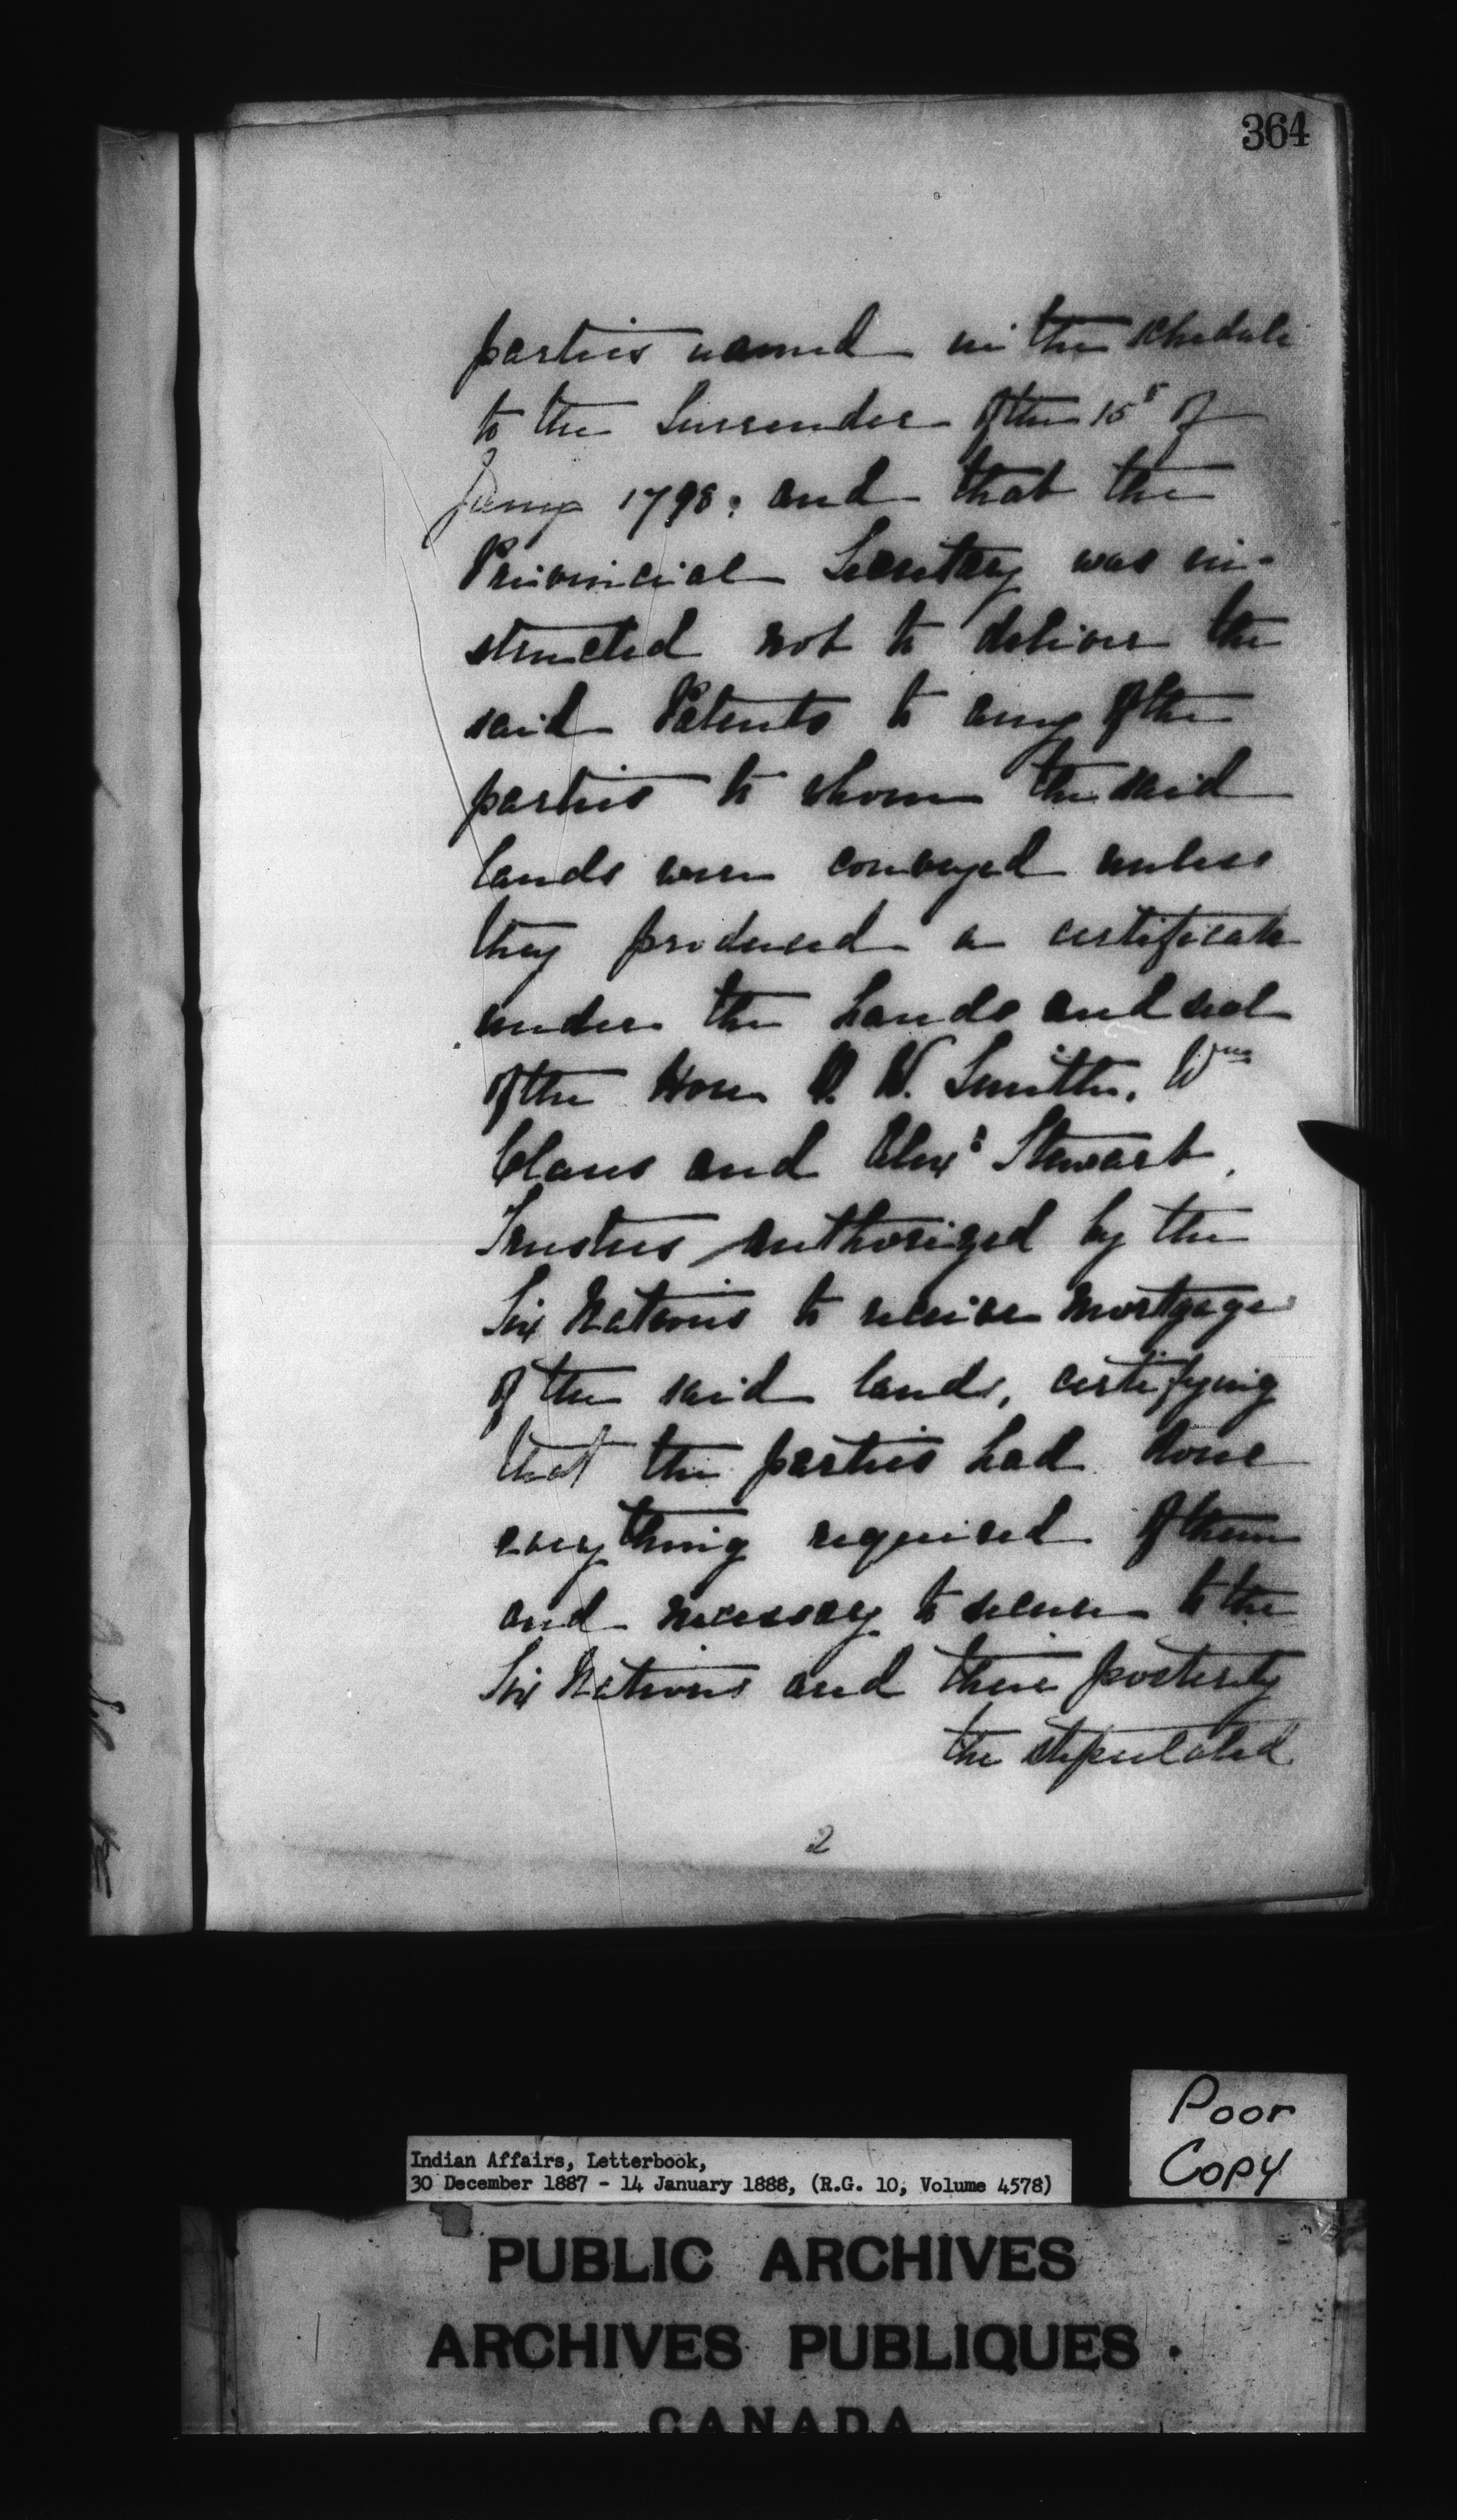 364
parties named in the schedule
to the Surrender of the 15th of
Jany 1798; and that the
Provincial Secretary was in-
structed not to deliver the
said Patents to any of the
parties to whom the said
lands were conveyed unless
they produced a certificate
under the hands and seal
of the Hon D. W. Smith, Wm
Claus and Alexr Stewart,
Trustees authorized by the
Six Nations to receive mortgage
of the said lands, certifying
that the parties had done
everything required of them
and necessary to secure to the
Six Nations and their posterity
the stipulated
2
Poor
Copy
Indian Affairs, Letterbook,
30 December 1887 - 14 January 1888, (R.G. 10, Volume 4578)
PUBLIC ARCHIVES
ARCHIVES PUBLIQUES
CANADA